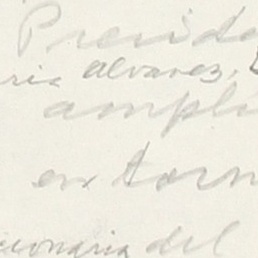 Presida
ria alvarez,
ampli
en torn
cionaria del